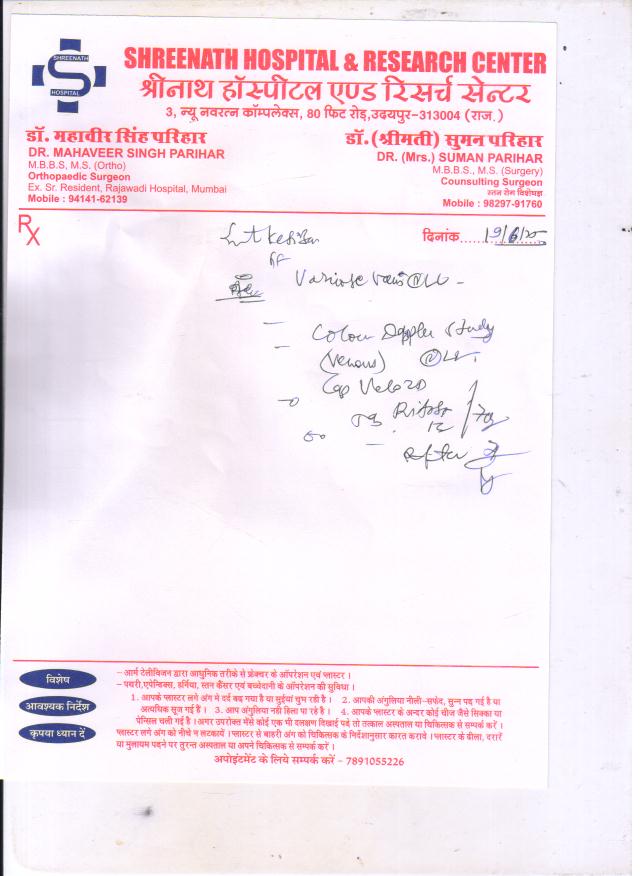 SHREENATH
S
HOSPITAL
SHREENATH HOSPITAL & RESEARCH CENTER
श्रीनाथ हॉस्पीटल एण्ड रिसर्च सेन्टर
3, न्यू नवरत्न कॉम्पलेक्स, 80 फिट रोड़, उदयपुर-313004 (राज.)
डॉ. महावीर सिंह परिहार
DR. MAHAVEER SINGH PARIHAR
M.B.B.S, M.S. (Ortho)
Orthopaedic Surgeon
Ex. Sr. Resident, Rajawadi Hospital, Mumbai
Mobile : 94141-62139
डॉ. (श्रीमती) सुमन परिहार
DR. (Mrs.) SUMAN PARIHAR
M.B.B.S., M.S. (Surgery)
Counsulting Surgeon
स्तन रोग विशेषज्ञ
Mobile : 98297-91760
Rx
दिनांक 19/6/25
Varicose veins
Colour Doppler study
(Venous)
Cap
after
विशेष
आवश्यक निर्देश
कृपया ध्यान दें
– आर्म टेलीविजन द्वारा आधुनिक तरीके से फ्रेक्चर के ऑपरेशन एवं प्लास्टर ।
– पथरी, एपेन्डिक्स, हर्निया, स्तन कैंसर एवं बच्चेदानी के ऑपरेशन की सुविधा ।
1. आपके प्लास्टर लगे अंग मे दर्द बढ़ गया है या सुईयां चुभ रही है । 2. आपकी अंगुलिया नीली-सफेद, सुन्न पड़ गई है या
अत्यधिक सूज गई है । 3. आप अंगुलिया नही हिला पा रहे है । 4. आपके प्लास्टर के अन्दर कोई चीज जैसे सिक्का या
पेन्सिल चली गई है । अगर उपरोक्त मेंसे कोई एक भी दलक्षण दिखाई पडे तो तत्काल अस्पताल या चिकित्सक से सम्पर्क करें ।
प्लास्टर लगे अंग को नीचे न लटकायें । प्लास्टर से बाहरी अंग को चिकित्सक के निर्देशानुसार कारत करावे । प्लास्टर के ढीला, दरारें
या मुलायम पडने पर तुरन्त अस्पताल या अपने चिकित्सक से सम्पर्क करें ।
अपोइंटमेंट के लिये सम्पर्क करें - 7891055226